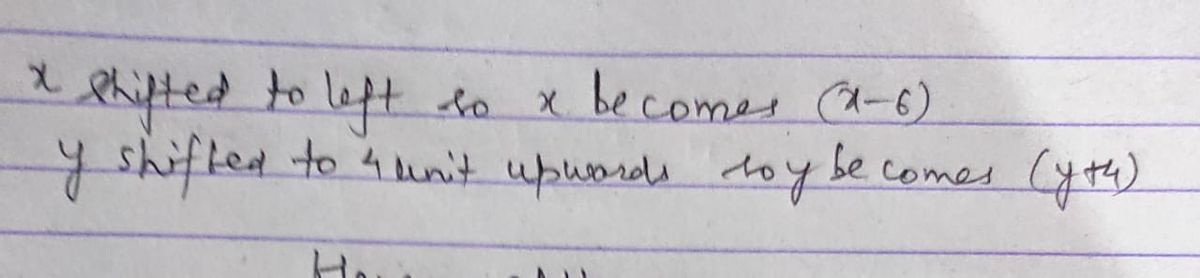 x shifted to left so x becomes (x-6)
y shifted to 4 unit upwards so y becomes (y+4)